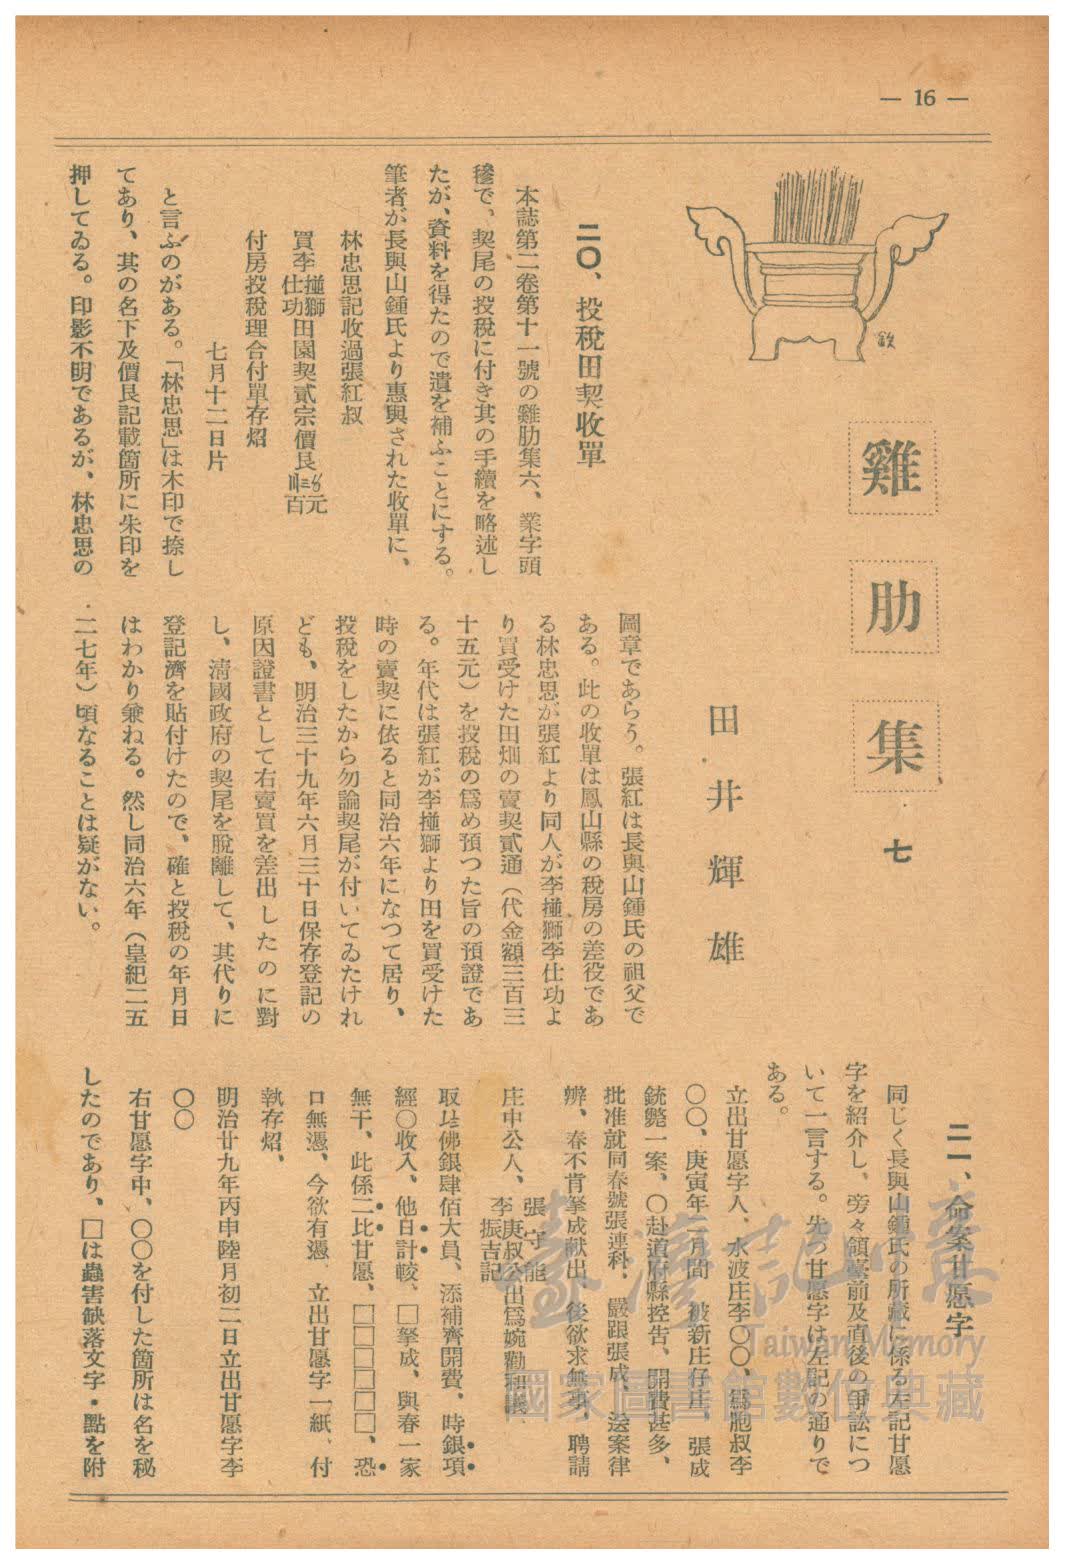 — 16 —
雞肋集 七
田井輝雄
二〇、投稅田契收單
本誌第二卷第十一號の雞肋集六、業字頭
穇で、契尾の投稅に付き其の手續を略述し
たが、資料を得たので遺を補ふことにする。
筆者が長興山鍾氏より惠與された收單に、
林忠思記收過張紅叔
買李㨂獅仕功田園契貳宗價艮〣〓百元
付房投稅理合付單存炤
七月十二日片
と言ふのがある。「林忠思」は木印で捺し
てあり、其の名下及價艮記載箇所に朱印を
押してゐる。印影不明であるが、林忠思の
圖章であらう。張紅は長興山鍾氏の祖父で
ある。此の收單は鳳山縣の稅房の差役であ
る林忠思が張紅より同人が李㨂獅李仕功よ
り買受けた田畑の賣契貳通（代金額三百三
十五元）を投稅の爲め預つた旨の預證であ
る。年代は張紅が李㨂獅より田を買受けた
時の賣契に依ると同治六年になつて居り、
投稅をしたから勿論契尾が付いてゐたけれ
ども、明治三十九年六月三十日保存登記の
原因證書として右賣買を差出したのに對
し、淸國政府の契尾を脫離して、其代りに
登記濟を貼付けたので、確と投稅の年月日
はわかり兼ねる。然し同治六年（皇紀二五
二七年）頃なることは疑がない。
二一、命案甘愿字
同じく長興山鍾氏の所藏に係る左記甘愿
字を紹介し、旁々領臺前及直後の爭訟につ
いて一言する。先づ甘愿字は左記の通りで
ある。
立出甘愿字人、水波庄李〇〇、爲胞叔李
〇〇、庚寅年二月間、被新庄仔庄、張成
銃斃一案、〇赴道府縣控告、開費甚多、
批准就同春號張連科、嚴跟張成、送案律
辨、春不肯拏成献出、後欲求無事、聘請
庄中公人、張守能李庚叔公李振吉記出爲婉勸和議、
取𠃊佛銀肆佰大員、添補齊開費、時銀項
經〇收入、他日計較、□拏成、與春一家
無干、此係二比甘愿、□□□□□、恐
口無憑、今欲有憑、立出甘愿字一紙、付
執存炤、
明治廿九年丙申陸月初二日立出甘愿字李
〇〇
右甘愿字中、〇〇を付した箇所は名を秘
したのであり、□は蟲害缺落文字・點を附
臺灣記憶
Taiwan Memory
國家圖書館數位典藏